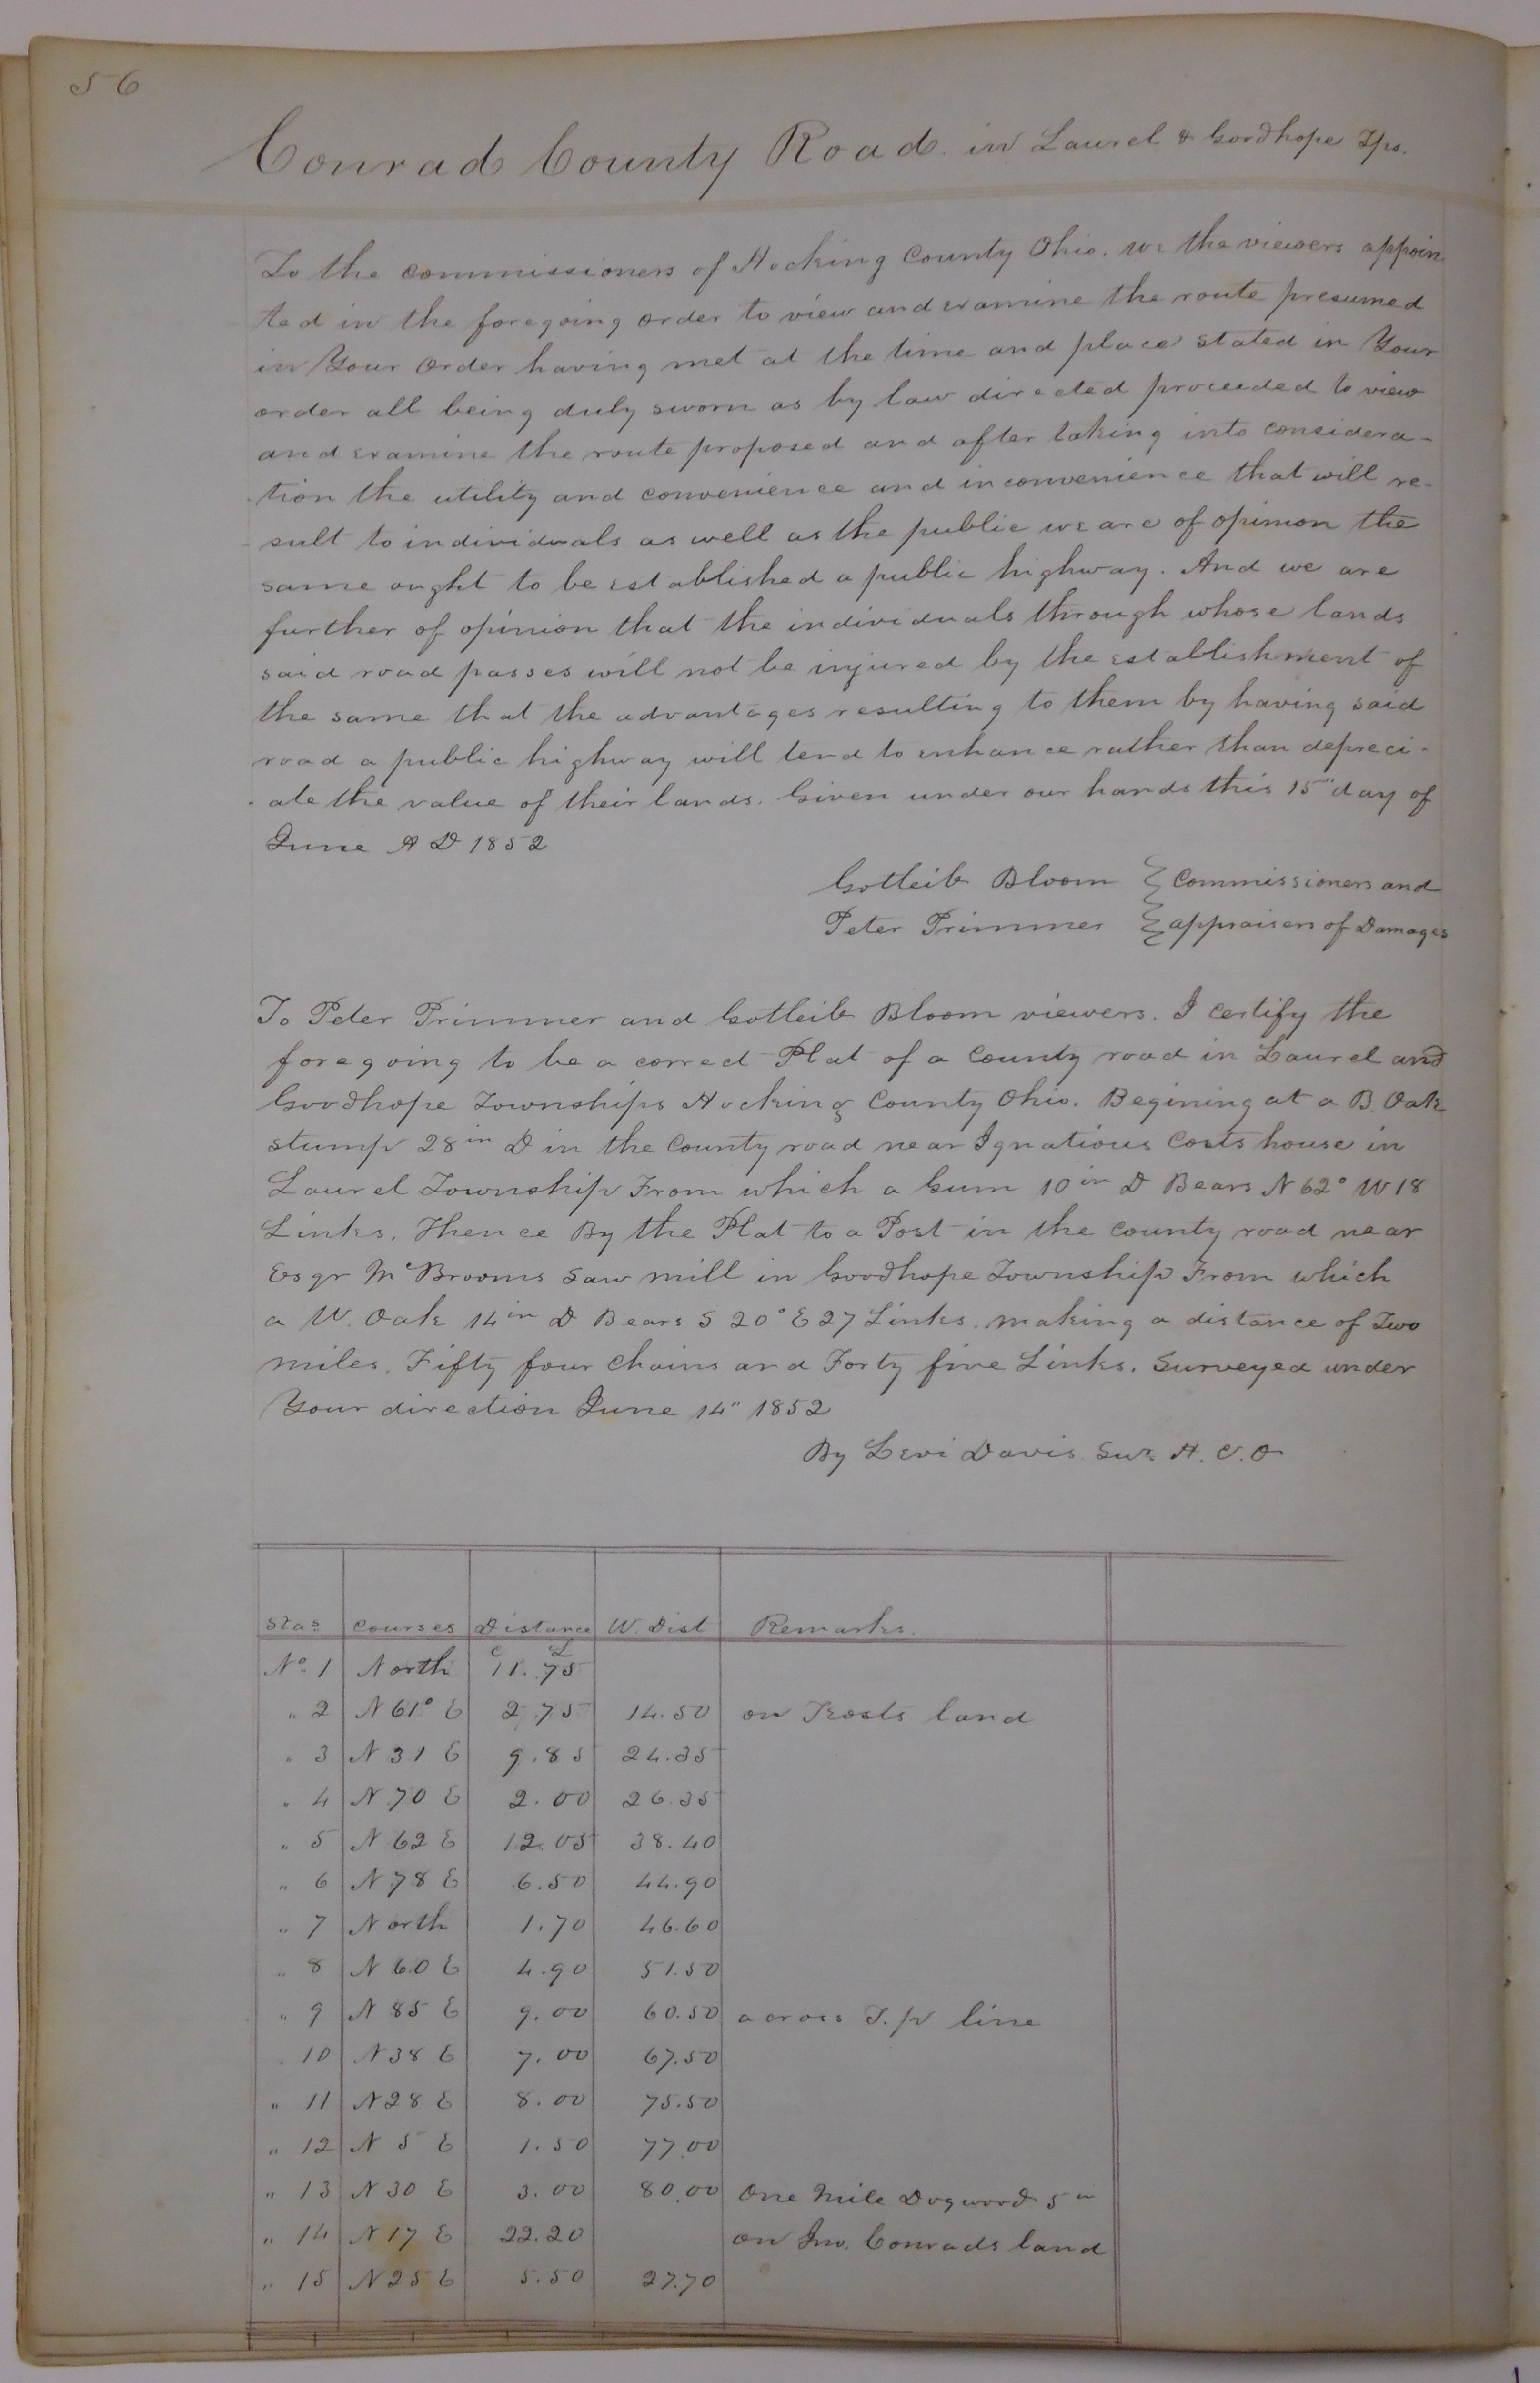 56
Conrad County Road. in Laurel & Goodhope Tps.
To the commissioners of Hocking County Ohio. We the viewers appoin
ted in the foregoing order to view and examine the route presumed
in Your order having met at the time and place stated in Your
order all being duly sworn as by law directed proceeded to view
and examine the route proposed and after taking into considera-
tion the utility and convenience and inconvenience that will re-
sult to individuals as well as the public we are of opinion the
same ought to be established a public highway. And we are
further of opinion that the individuals through whose lands
said road passes will not be injured by the establishment of
the same that the advantages resulting to them by having said
road a public highway will tend to enhance rather than depreci-
ate the value of their lands. Given under our hands this 15" day of
June A D 1852
Gotleib Bloom } Commissioners and
Peter Primmer } appraisers of Damages
To Peter Primmer and Gotleib Bloom viewers. I certify the
foregoing to be a correct Plat of a County road in Laurel and
Goodhope Townships Hocking County Ohio. Begining at a B. Oak
stump 28in D in the County road near Ignatious Costs house in
Laurel Township From which a Gum 10in D Bears N 62° W 18
Links. Thence By the Plat to a Post in the county road near
Esqr McBrooms Saw mill in Goodhope Township From which
a W. Oak 14in D Bears S 20° E 27 Links. making a distance of Two
miles, Fifty four Chains and Forty five Links. Surveyed under
Your direction June 14" 1852
By Levi Davis. Surr. H. C. O
Stas Courses Distance W. Dist Remarks.
C L
No. 1 North 11.75
" 2 N 61° E 2.75 14.50 on Kosts land
" 3 N 31 E 9.85 24.35
" 4 N 70 E 2.00 26.35
" 5 N 62 E 12.05 38.40
" 6 N 78 E 6.50 44.90
" 7 North 1.70 46.60
" 8 N 60 E 4.90 51.50
" 9 N 85 E 9.00 60.50 across T.p line
" 10 N 38 E 7.00 67.50
" 11 N 28 E 8.00 75.50
" 12 N 5 E 1.50 77.00
" 13 N 30 E 3.00 80.00 One Mile Dogwood 5 in
" 14 N 17 E 22.20 on Jno. Conrads land
" 15 N 25 E 5.50 27.70